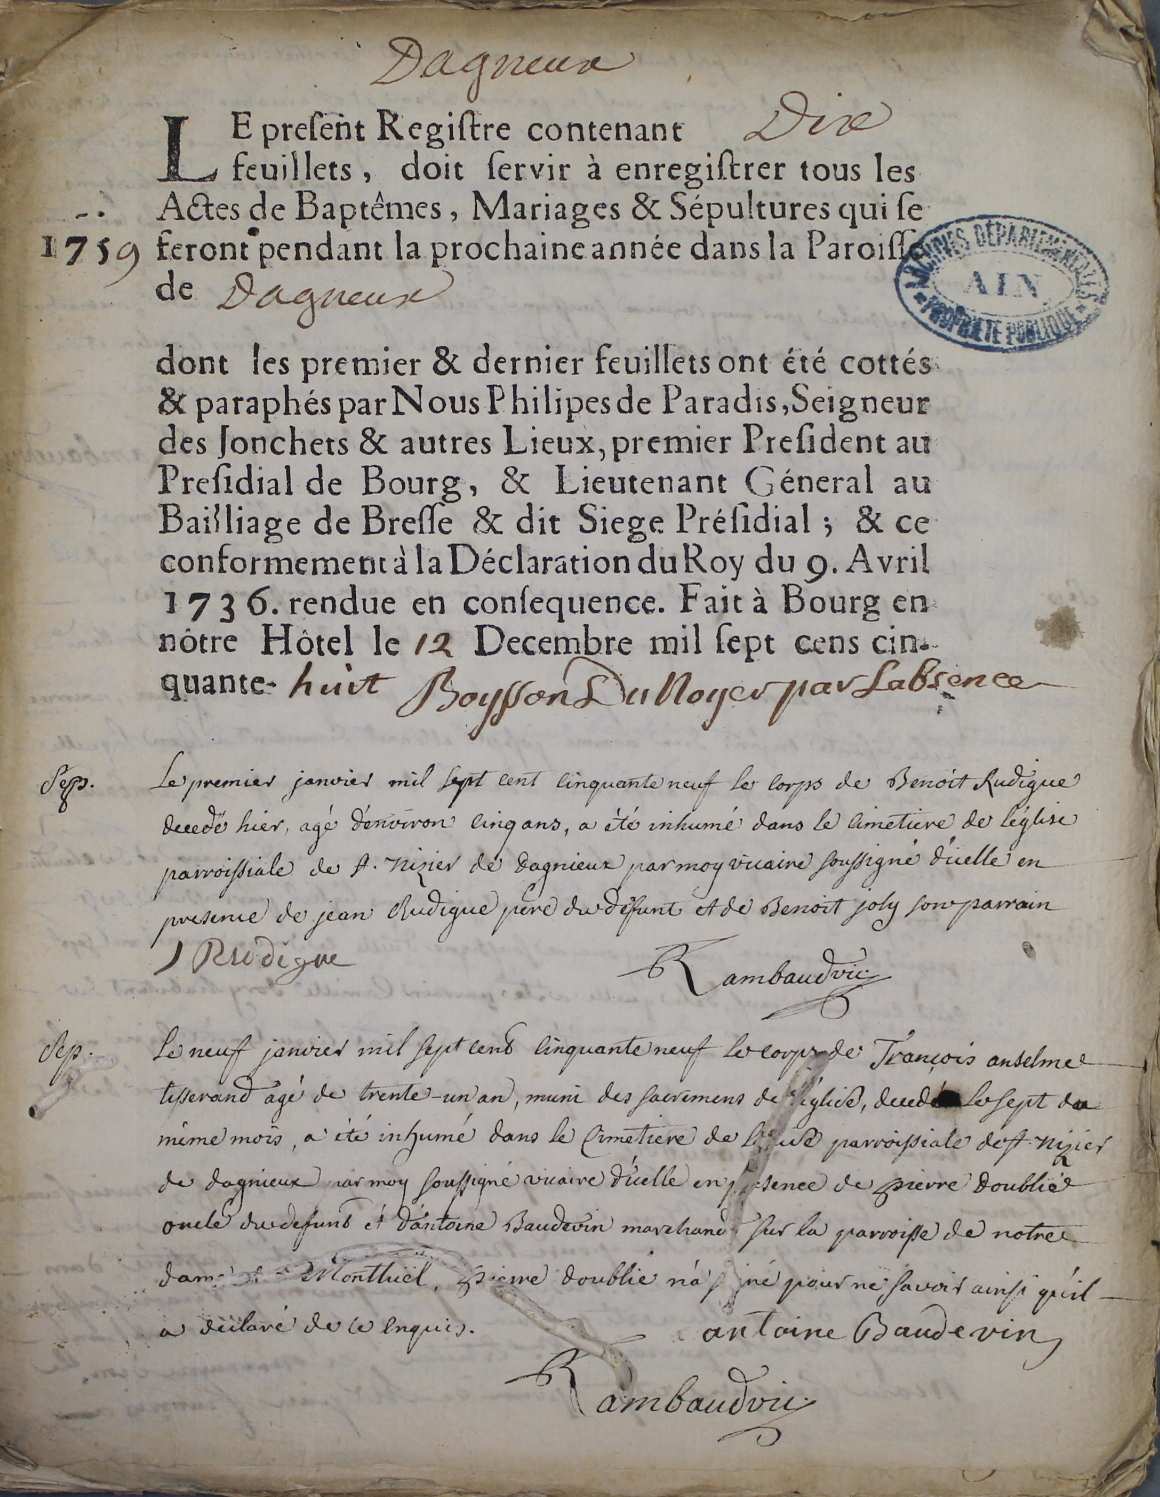 Dagneux
LE preſent Regiſtre contenant Dix
feuillets, doit ſervir à enregiſtrer tous les
Actes de Baptêmes, Mariages & Sépultures qui ſe
1759 feront pendant la prochaine année dans la Paroiſſe
de Dagneux
ARCHIVES DÉPARTEMENTALES
AIN
PROPRIÉTÉ PUBLIQUE
dont les premier & dernier feuillets ont été cottés
& paraphés par Nous Philipes de Paradis, Seigneur
des Jonchets & autres Lieux, premier Preſident au
Preſidial de Bourg, & Lieutenant Géneral au
Bailliage de Breſſe & dit Siege Préſidial ; & ce
conformement à la Déclaration du Roy du 9. Avril
1736. rendue en conſequence. Fait à Bourg en
nôtre Hôtel le 12 Decembre mil ſept cens cin-
quante- huit Boysson Du Noyer par Labsence
Sep. Le premier janvier mil sept cent cinquante neuf le corps de Benoit Rudigue
decedé hier, agé d'environ cinq ans, a été inhumé dans le cimetiere de l'église
parroissiale de st. nizier de dagnieux par moy vicaire soussigné d'icelle en
presence de jean Rudigue père du defunt et de Benoit joly son parrain
J Rudigue Rambaud vic.
Sep. Le neuf janvier mil sept cent cinquante neuf le corps de François anselme
tisserand agé de trente-un an, muni des sacremens de l'église, decedé le sept du
même mois, a été inhumé dans le cimetiere de l'église parroissiale de st. nizier
de dagnieux par moy soussigné vicaire d'icelle en presence de pierre doublie
oncle du defunt et d'antoine Baudevin marchand sur la parroisse de notre
dame de Montluel, pierre doublie n'a signé pour ne savoir ainsi qu'il
a déclaré de ce enquis. antoine Baudevin
Rambaud vic.